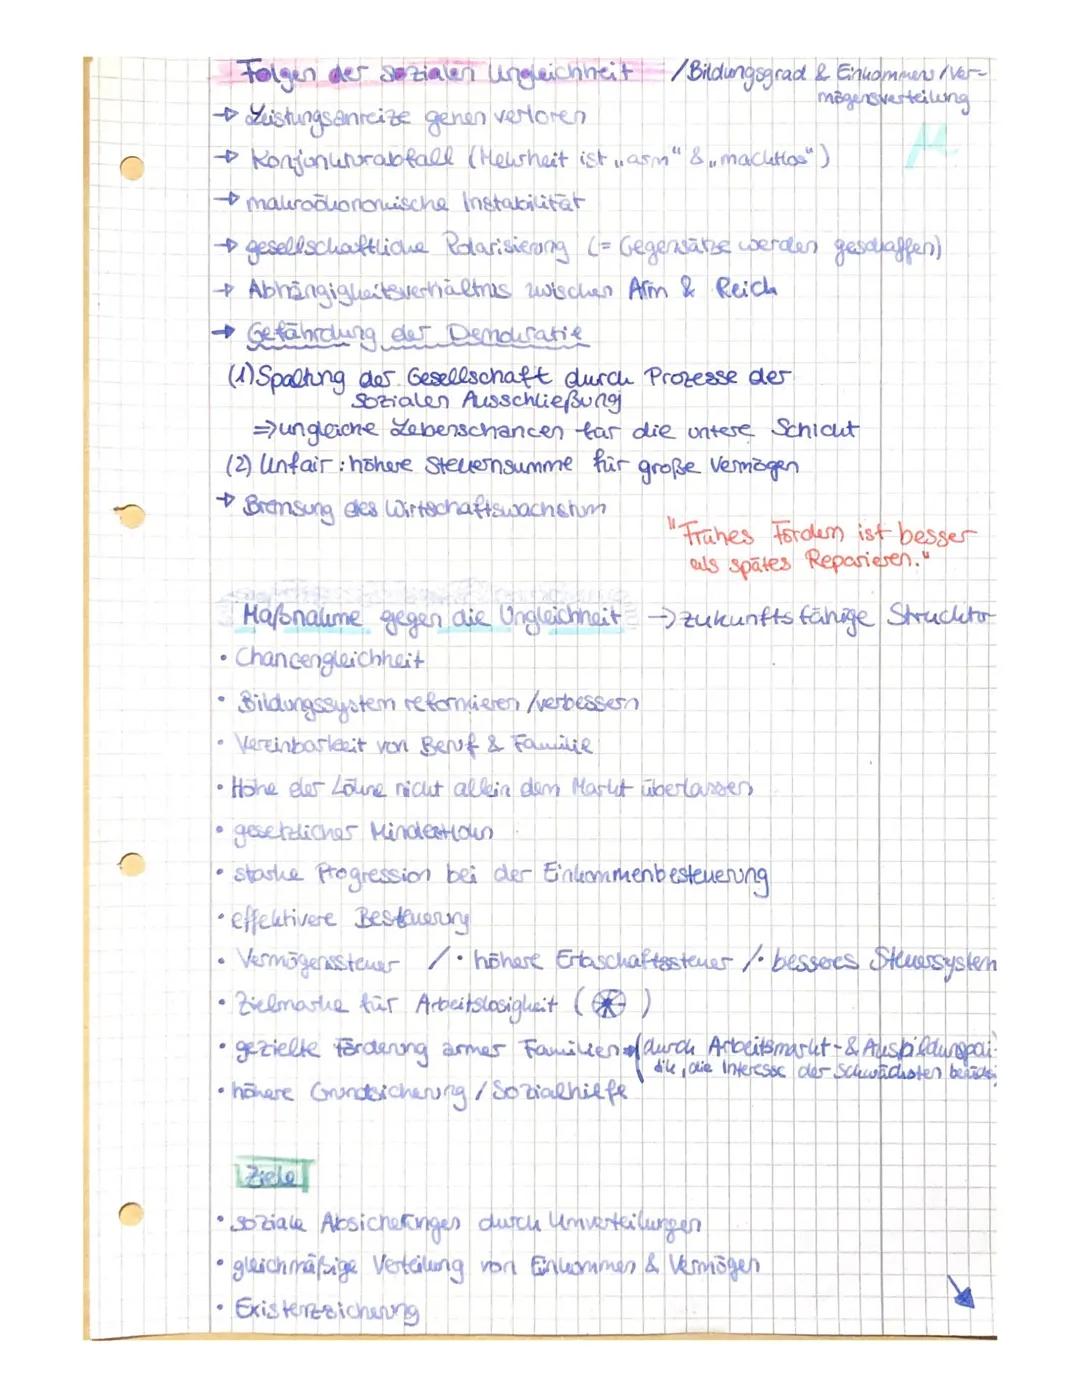 Folgen der sozialen Ungleichheit /Bildungsgrad & Einkommen/Ver-
mögensverteilung
→ Leistungsanreize gehen verloren
→ Konjunkturabfall (Mehrheit ist „arm" & „machtlos")
→ makroökonomische Instabilität
→ gesellschaftliche Polarisierung (= Gegensätze werden geschaffen)
→ Abhängigkeitsverhältnis zwischen Arm & Reich
→ Gefährdung der Demokratie
(1) Spaltung der Gesellschaft durch Prozesse der
sozialen Ausschließung
⇒ ungleiche Lebenschancen für die untere Schicht
(2) Unfair: höhere Steuernsumme für große Vermögen
→ Bremsung des Wirtschaftswachstum
"Frühes Fördern ist besser
als spätes Reparieren."
Maßnahme gegen die Ungleichheit → zukunftsfähige Strucktur
• Chancengleichheit
• Bildungssystem reformieren/verbessern
• Vereinbarkeit von Beruf & Familie
• Höhe der Löhne nicht allein dem Markt überlassen
• gesetzlicher Mindestlohn
• starke Progression bei der Einkommenbesteuerung
• effektivere Besteuerung
• Vermögenssteuer /• höhere Erbschaftssteuer /• besseres Steuersystem
• Zielmarke für Arbeitslosigkeit ( )
• gezielte Förderung armer Familien → (durch Arbeitsmarkt- & Ausbildungspoli-
tik, die Interesse der Schwächsten
• höhere Grundsicherung / Sozialhilfe
Ziele
• soziale Absicherungen durch Umverteilungen
• gleichmäßige Verteilung von Einkommen & Vermögen
• Existenzsicherung